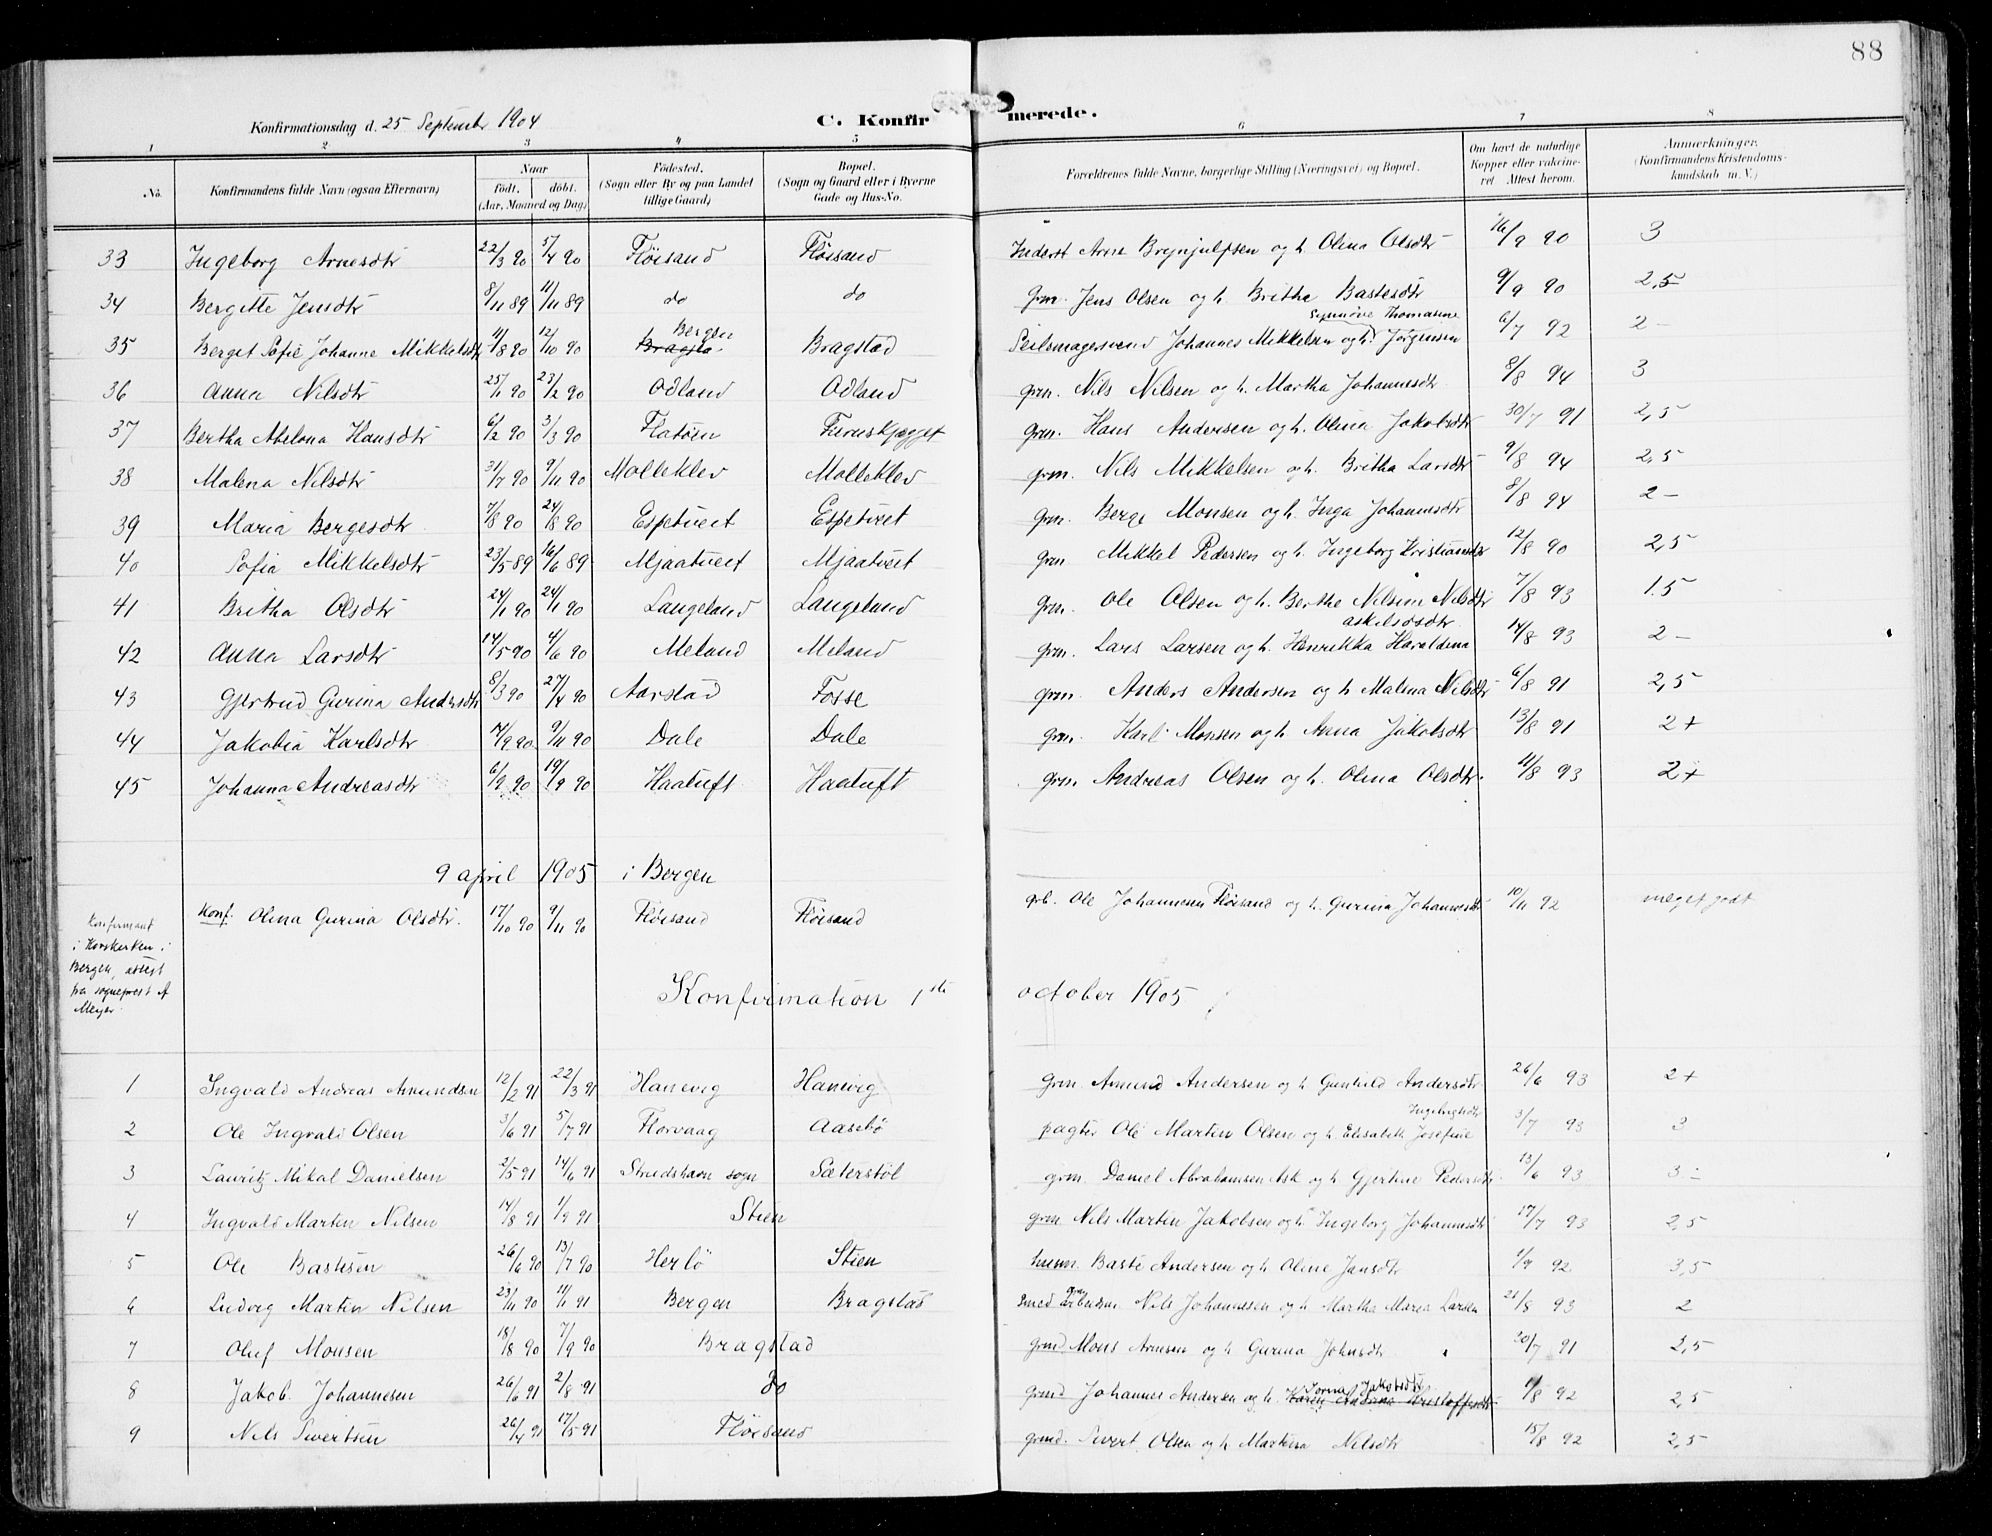 88
Konfirmationsdag d. 25 September 1904 C. Konfirmerede.
1 2 3 4 5 6 7 8
No. Konfirmandens fulde Navn (ogsaa Efternavn) Naar født. døbt. (Aar, Maaned og Dag) Fødested. (Sogn eller By og paa Landet tillige Gaard) Bopæl. (Sogn og Gaard eller i Byerne Gade og Hus-No. Forældrenes fulde Navne, borgerlige Stilling (Næringsvei) og Bopæl. Om havt de naturlige Kopper eller vaccineret Attest herom. Anmærkninger. (Konfirmandens Kristendomskundskab m. V.)
33 Ingeborg Arnesdtr 22/3 90 5/4 90 Fløisand Fløisand Inderst Arne Brynjulfsen og h. Olina Olsdtr 16/9 90 3
34 Bergitte Jensdtr 8/11 89 11/11 89 do do grm. Jens Olsen og h. Britha Bastesdtr 9/9 90 2,5
35 Berget Sofie Johanne Mikkelsdtr 11/8 90 12/10 90 Bergen Bragstad Seilmagersvend Johannes Mikkelsen og h. Synnöve Thomasine Jørgensen 6/7 92 2-
36 Anna Nilsdtr 25/1 90 23/2 90 Odland Odland grm. Nils Nilsen og h. Martha Johannesdtr 8/8 94 3
37 Bertha Abelona Hansdtr 6/2 90 3/3 90 Flatøen Furuskjægget grm. Hans Andersen og h. Olina Jakobsdtr 30/7 91 2,5
38 Malena Nilsdtr 31/7 90 9/11 90 Molleklev Molleklev grm. Nils Mikkelsen og h. Britha Larsdtr 9/8 94 2,5
39 Maria Bergesdtr 7/8 90 24/8 90 Espetveit Espetveit grm. Berge Monsen og h. Inga Johannesdtr 8/8 94 2-
40 Sofia Mikkelsdtr 23/5 89 16/6 89 Mjaatveit Mjaatveit grm Mikkel Pedersen og h. Ingeborg Kristiansdtr 12/8 90 2,5
41 Britha Olsdtr 24/11 90 24/11 90 Langeland Langeland grm. Ole Olsen og h. Berthe Nilsine Nilsdtr 7/8 93 1.5
42 Anna Larsdtr 14/5 90 4/6 90 Meland Meland grm. Lars Larsen og h. Henrikka Haraldina Askilsdsdtr 14/8 93 2-
43 Gjertrud Gurina Andersdtr 8/3 90 27/4 90 Aarstad Fosse grm. Anders Andersen og h Malena Nilsdtr 6/8 91 2,5
44 Jakobia Karlsdtr 14/9 90 9/11 90 Dale Dale grm. Karl Monsen og h. Anna Jakobsdtr 13/8 91 2+
45 Johanna Andreasdtr 6/9 90 19/9 90 Haatuft Haatuft grm. Andreas Olsen og h. Olina Olsdtr 11/8 93 2+
9 april 1905 i Bergen
Konfirmant i Korskirken i Bergen, attest fra sogneprest A Meyer
Konf. Olina Gurina Olsdtr. 17/10 90 9/11 90 Fløisand Fløisand grb. Ole Johannesen Fløisand og h. Gurina Johannesdtr 10/11 92 meget godt
Konfirmation 1ste october 1905
1 Ingvald Andreas Amundsen 12/2 91 22/3 91 Hanevig Hanevig grm. Amund Andersen og h Gunhild Andersdtr 26/6 93 2+
2 Ole Ingvald Olsen 3/6 91 5/7 91 Florvaag Aasebø pagter Ole Martin Olsen og h Elisabeth Josefine Ingebrigtsdtr 3/7 93 3
3 Lauritz Mikal Danielsen 2/5 91 14/6 91 Strudshavn sogn Sæterstøl grm Daniel Abrahamsen Ask og h Gjertine Pedersdtr 13/6 93 3-
4 Ingvald Martin Nilsen 14/8 91 1/9 91 Stien grm. Nils Martin Jakobsen og h Ingeborg Johannesdtr 17/7 93 2,5
5 Ole Bastesen 26/6 90 13/7 90 Herlø Stien husm. Baste Andersen og h Oline Jansdtr 1/9 92 3,5
6 Ludvig Martin Nilsen 23/11 90 11/1 91 Bergen Bragstad Nils Johannesen og h Martha Maria Larsen 21/8 93 2
7 Oluf Monsen 18/8 90 7/9 90 Bragstad grmd Mons Arnesen og h Gurina Johnsdtr 30/7 91 2,5
8 Jakob Johannesen 26/6 91 2/8 91 do grmd Johannes Andersen og h. Jorina Jakobsdtr 1/8 92 2,5
9 Nils Sivertsen 26/4 91 17/5 91 Fløisand grmd. Sivert Olsen og h Martina Nilsdtr 15/8 92 2,5